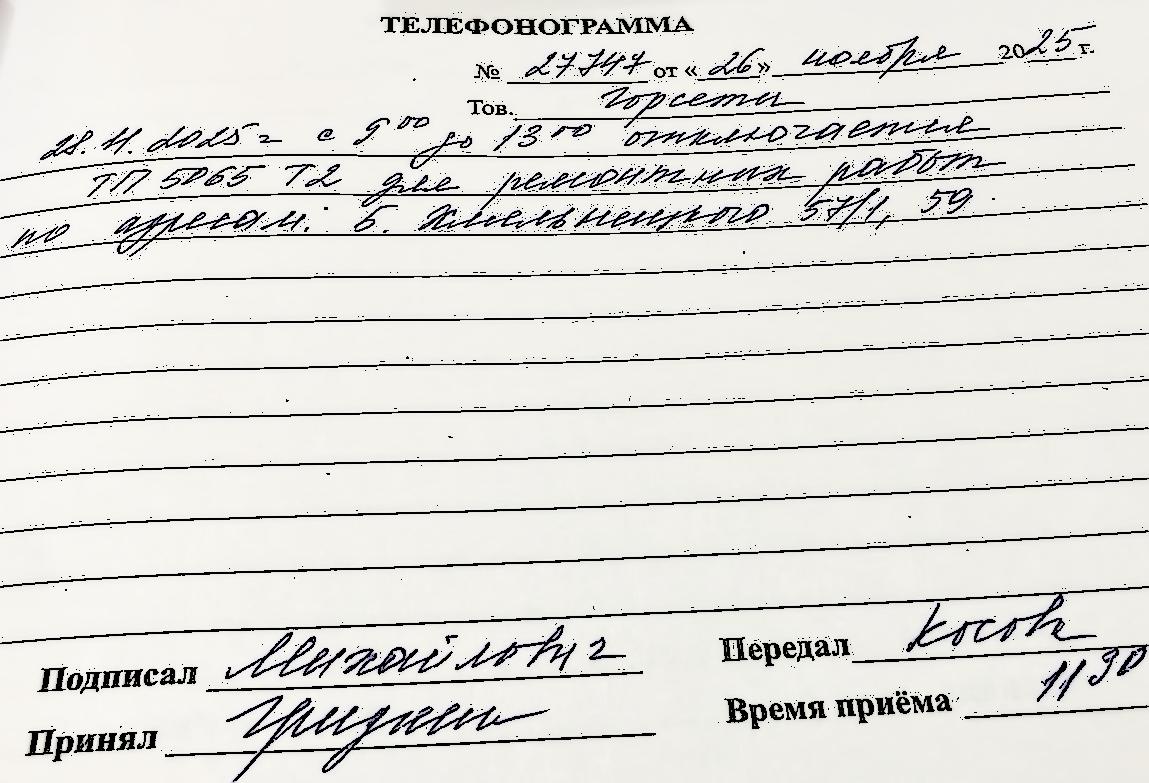 ТЕЛЕФОНОГРАММА
№ 27747 от «26» ноября 2025 г.
Тов. Горсети
28.11.2025 г с 9 00 до 13 00 отключается
ТП 5065 Т2 для ремонтных работ
по адресам: Б. Хмельницкого 57/1, 59
Подписал Михайлович Передал Косова
Принял Время приёма 11 30